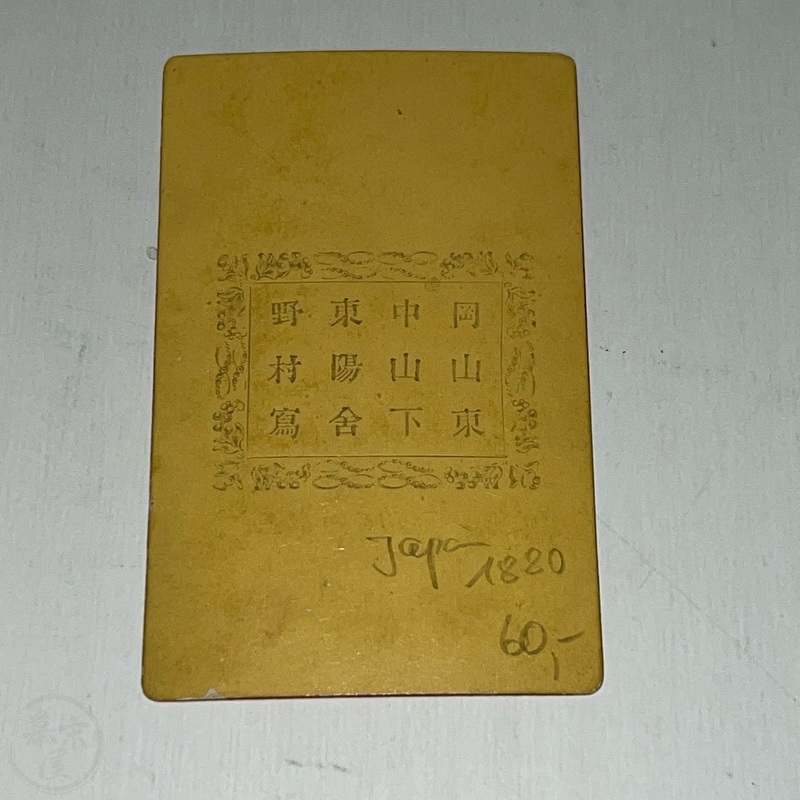 岡山東
中山下
東陽舎
野村寫
Japan
1820
60,-